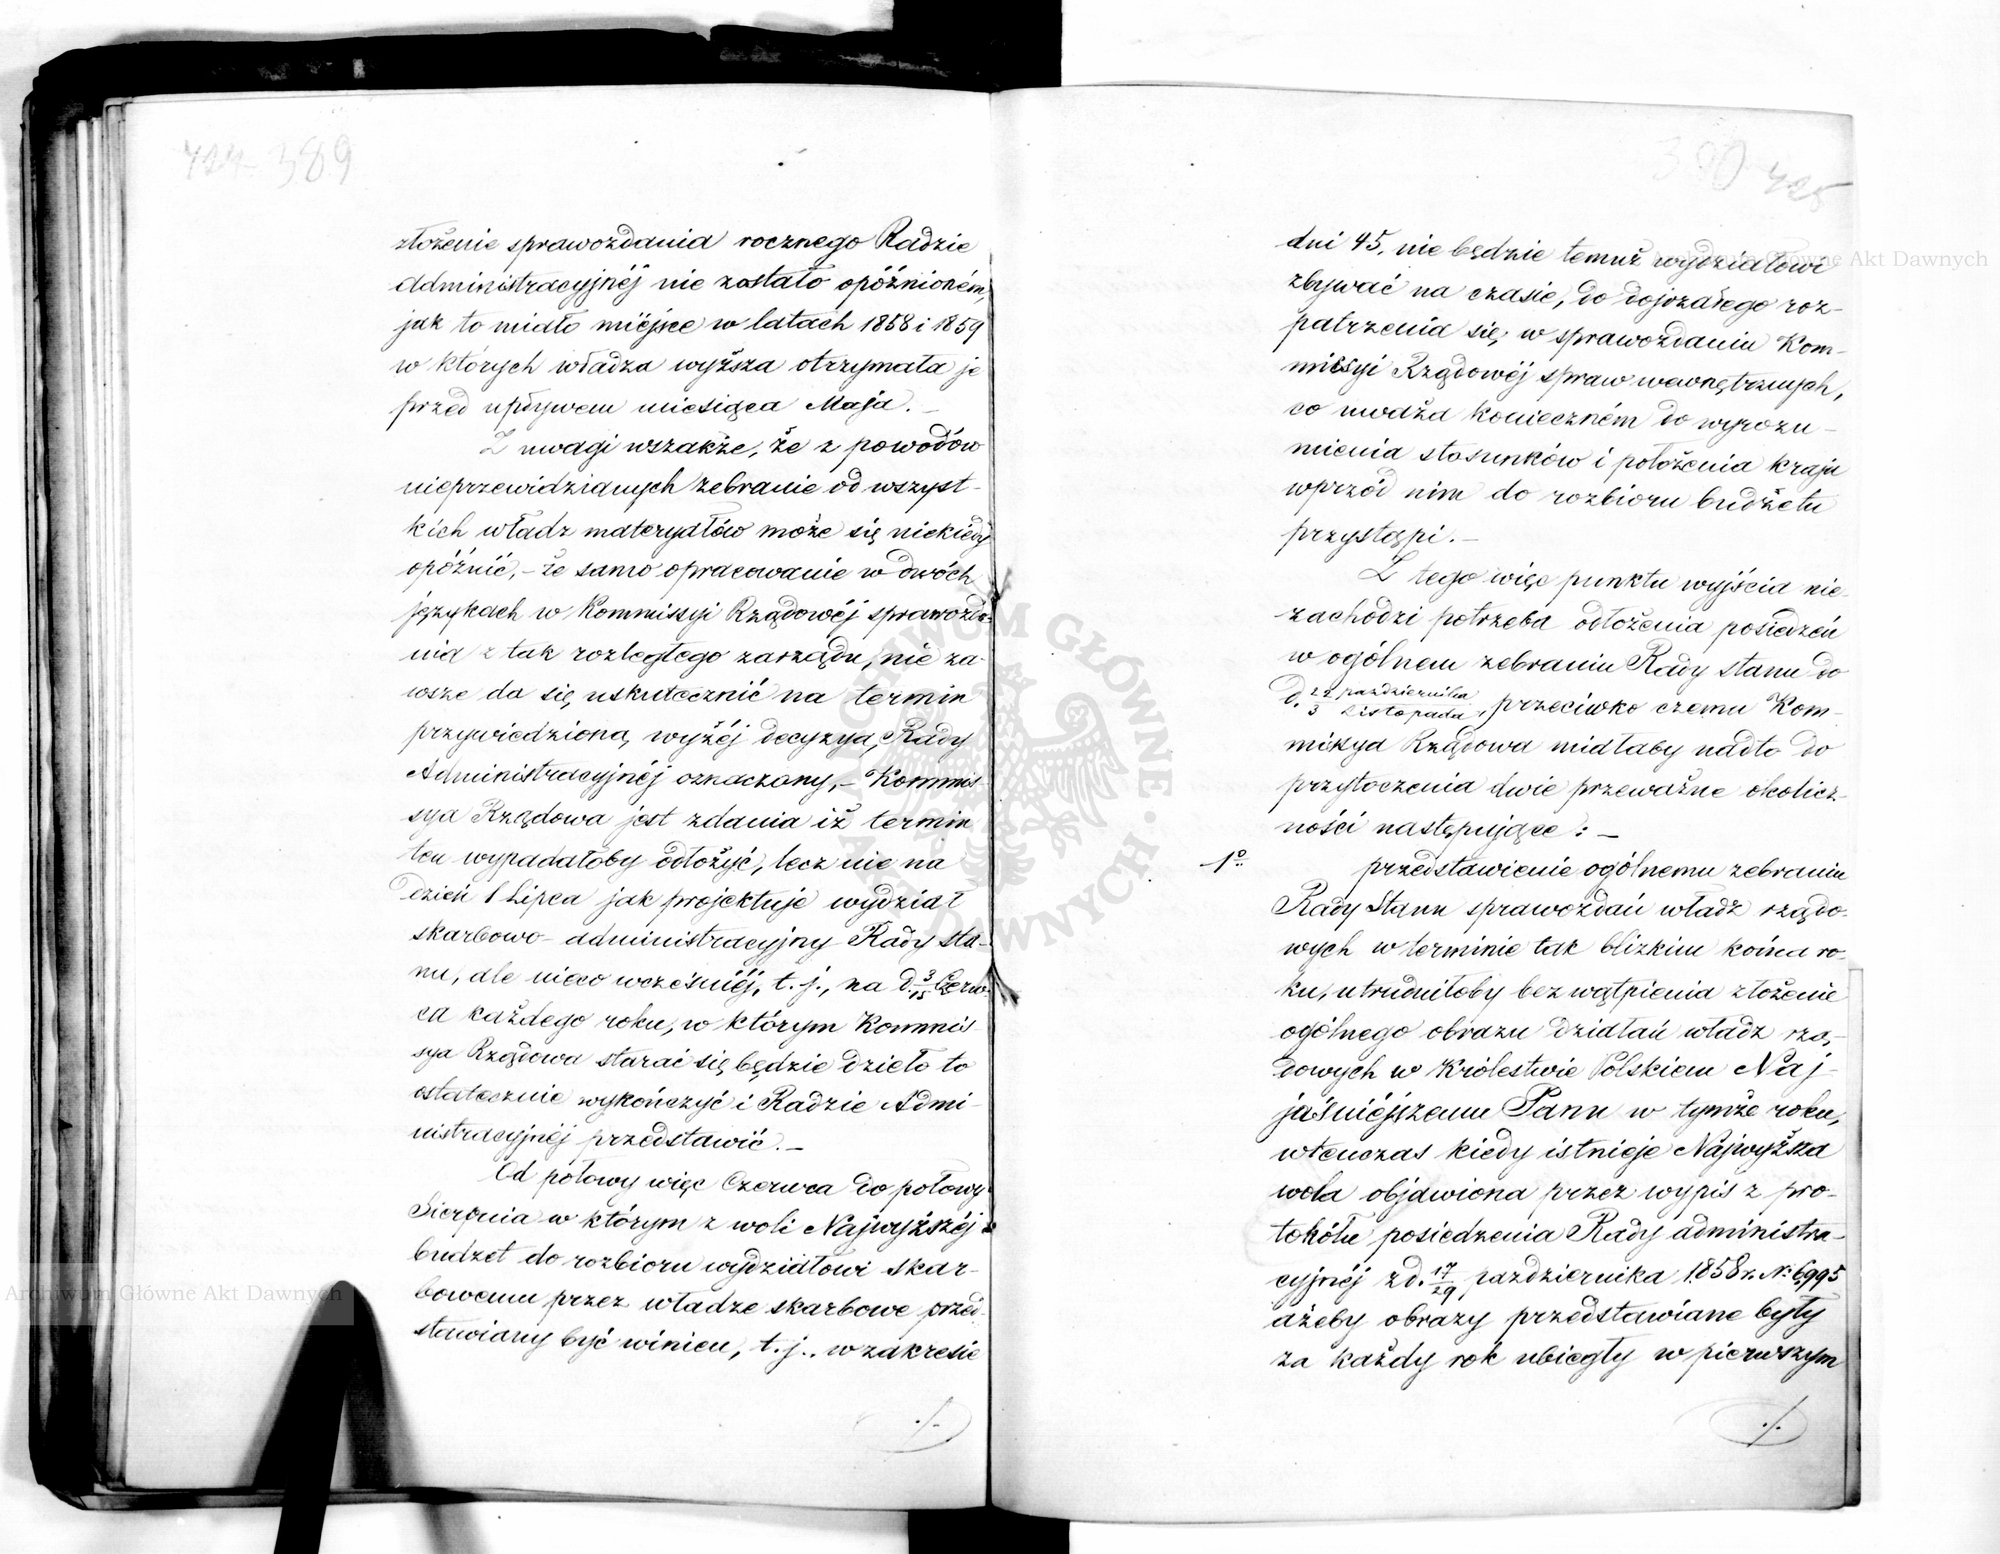 424 389
złożenie sprawozdania rocznego Radzie
Administracyjnéj nie zostało opóźnioném,
jak to miało miéjsce w latach 1858 i 1859
w których władza wyższa otrzymała je
przed upływem miesiąca Maja. –
Z uwagi wszakże, że z powodów
nieprzewidzianych zebranie od wszyst-
kich władz materyałów może się niekiedy
opóźnić, – że samo opracowanie w dwóch
językach w Kommissyi Rządowéj sprawozda-
nia z tak rozległego zarządu, nie za-
wsze da się uskutecznić na termin
przywiedzioną wyżéj decyzyą Rady
Administracyjnéj oznaczony, – Kommis-
sya Rządowa jest zdania iż termin
ten wypadałoby odłożyć, lecz nie na
dzień 1 Lipca jak projektuje wydział
skarbowo-administracyjny Rady Sta-
nu, ale nieco wcześniéj, t. j., na d. 3/15 Czerw-
ca każdego roku, w którym Kommis-
sya Rządowa starać się będzie dzieło to
ostatecznie wykończyć i Radzie Admi-
nistracyjnéj przedstawić. –
Od połowy więc Czerwca do połowy
Sierpnia w którym z woli Najwyższéj
budżet do rozbioru wydziałowi skar-
bowemu przez władze skarbowe przed-
stawiany być winien, t. j. w zakresie
./.
390 425
dni 45, nie będzie temuż wydziałowi
zbywać na czasie, do dojrzałego roz-
patrzenia się w sprawozdaniu Kom-
missyi Rządowéj spraw wewnętrznych,
co uważa konieczném do wyrozu-
mienia stosunków i położenia kraju
wprzód nim do rozbioru budżetu
przystąpi. –
Z tego więc punktu wyjścia nie
zachodzi potrzeba odłożenia posiedzeń
w ogólnem zebraniu Rady Stanu do
d. 22 października / 3 Listopada, przeciwko czemu Kom-
missya Rządowa miałaby nadto do
przytoczenia dwie przeważne okolicz-
ności następujące: –
1º przedstawienie ogólnemu zebraniu
Rady Stanu sprawozdań władz rządo-
wych w terminie tak blizkim końca ro-
ku, utrudniłoby bez wątpienia złożenie
ogólnego obrazu działań władz rzą-
dowych w Królestwie Polskiem Naj-
jaśniéjszemu Panu w tymże roku,
wtenczas kiedy istnieje Najwyższa
wola objawiona przez wypis z pro-
tokółu posiedzenia Rady administra-
cyjnéj z d. 17/29 października 1858 r. Nº 6,995
ażeby obrazy przedstawiane były
za każdy rok ubiegły w pierwszym
./.
Archiwum Główne Akt Dawnych
Archiwum Główne Akt Dawnych
ARCHIWUM GŁÓWNE AKT DAWNYCH